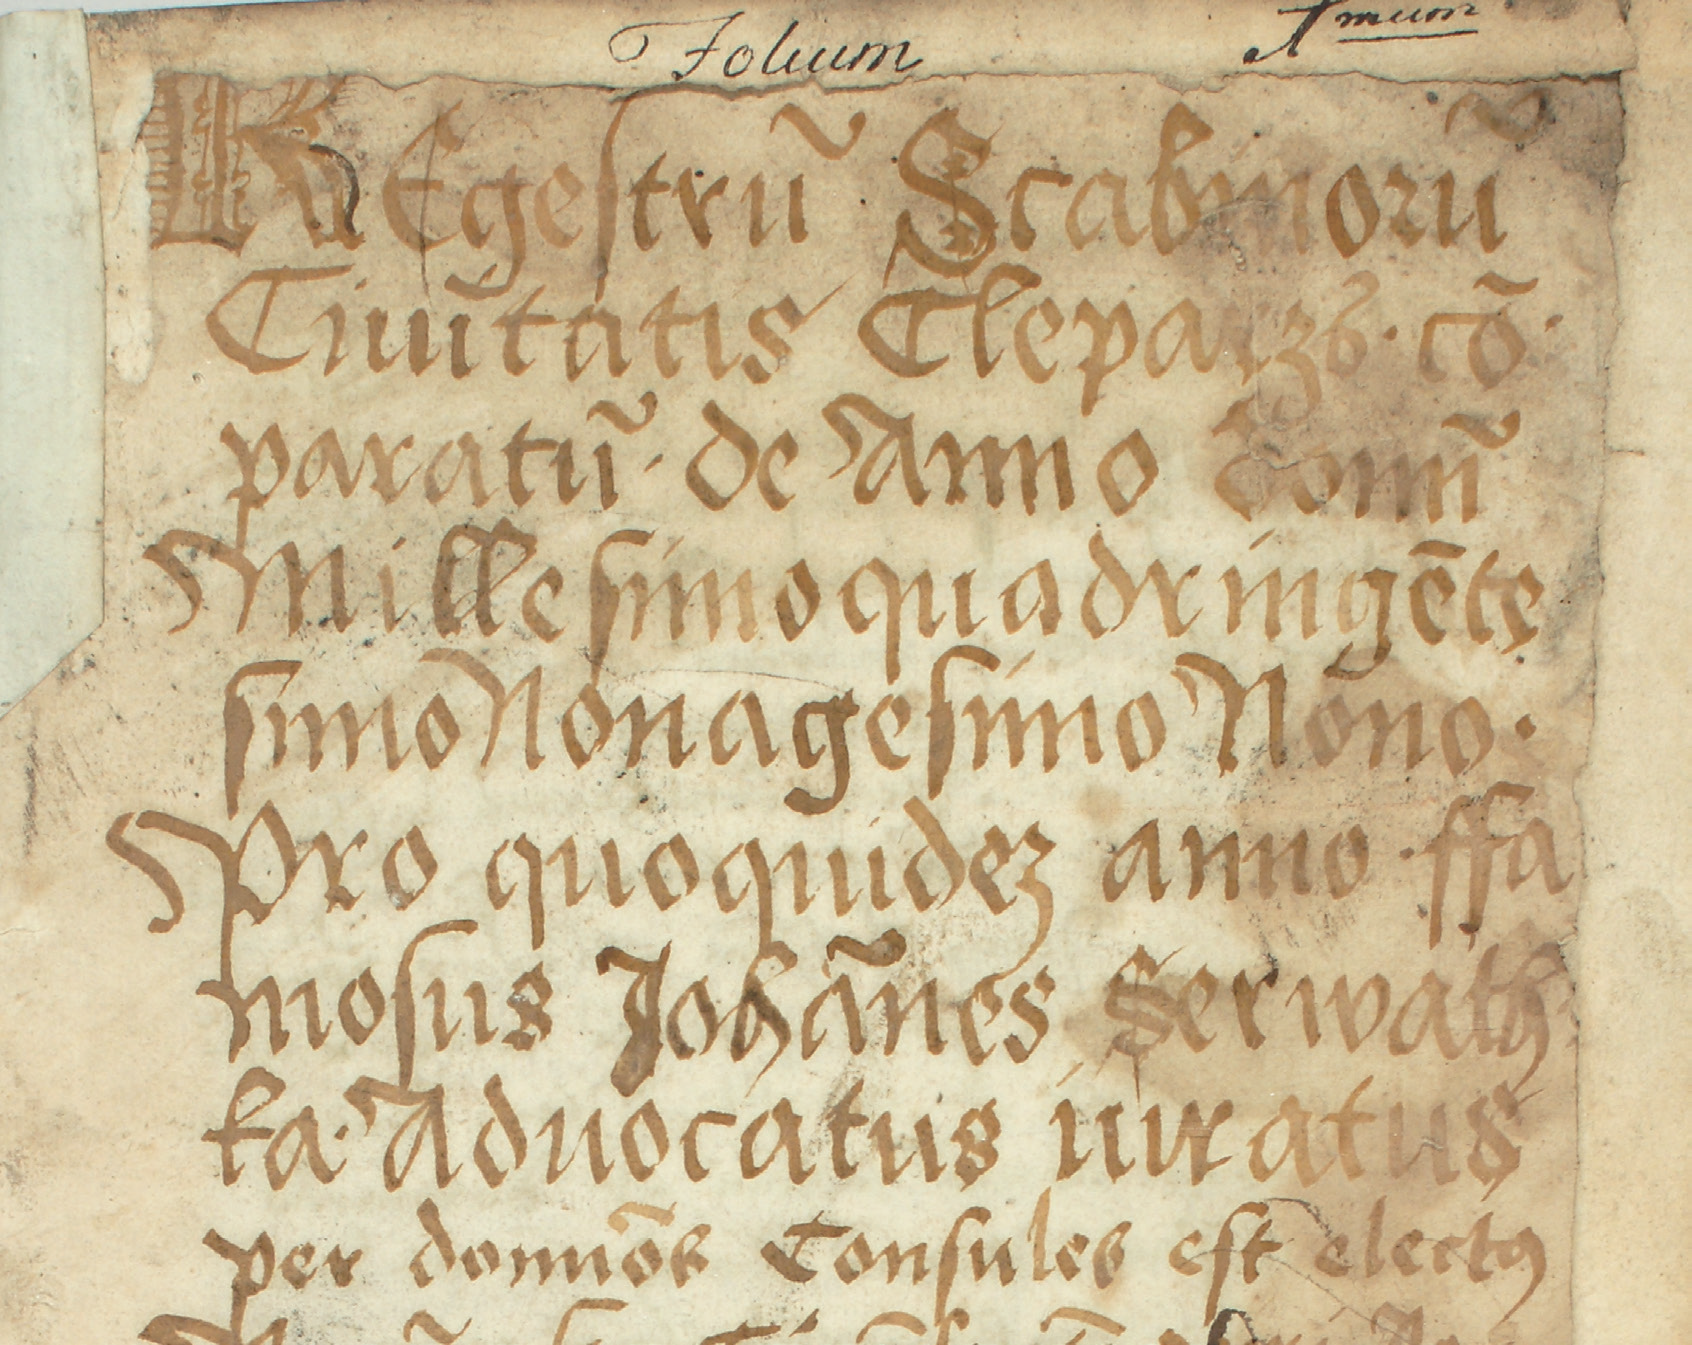 Folium
REgestrū Scabinorū
Ciuitatis Clepaizs . cō
paratū . de Anno domī
Millesimo quadringēte
simo Nonagesimo Nono .
Pro quoquidez anno . ffa
mosus Johānes Serwath
ka . Aduocatus iuratus
per domīos Consules est electꝰ